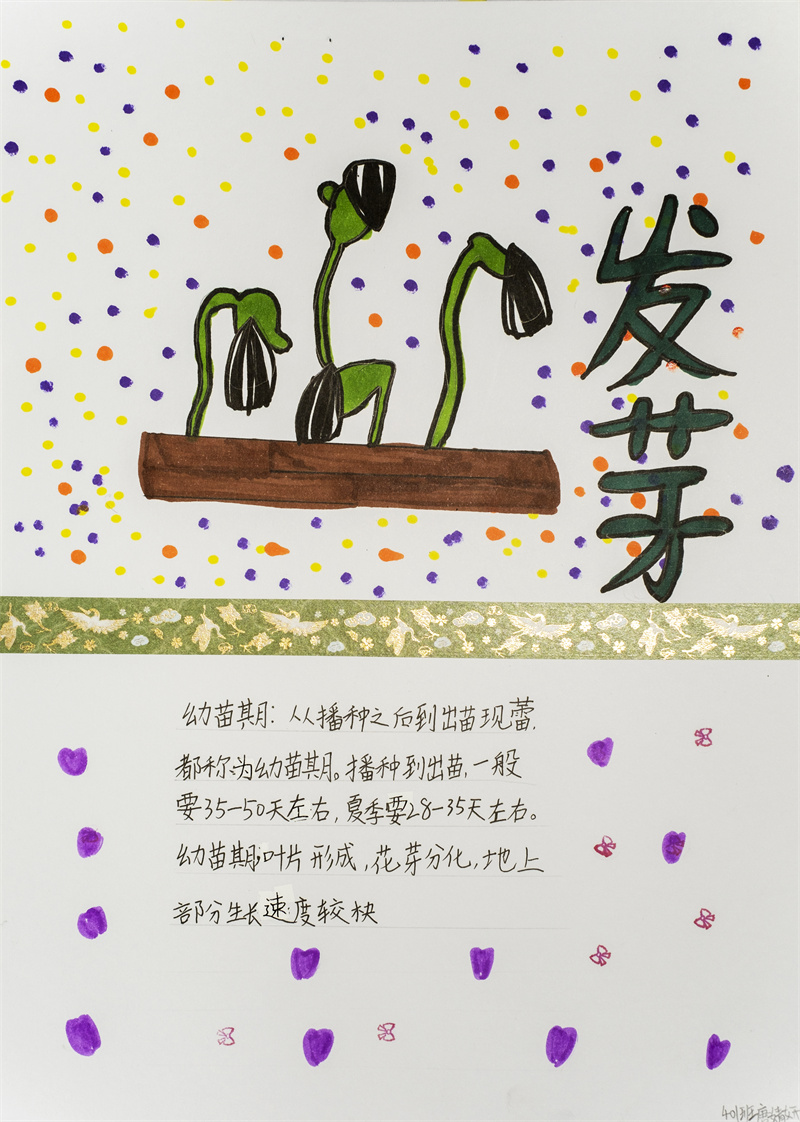 发芽
幼苗期：从播种之后到出苗现蕾，
都称为幼苗期。播种到出苗，一般
要35-50天左右，夏季要28-35天左右。
幼苗期叶片形成，花芽分化，地上
部分生长速度较快
401班